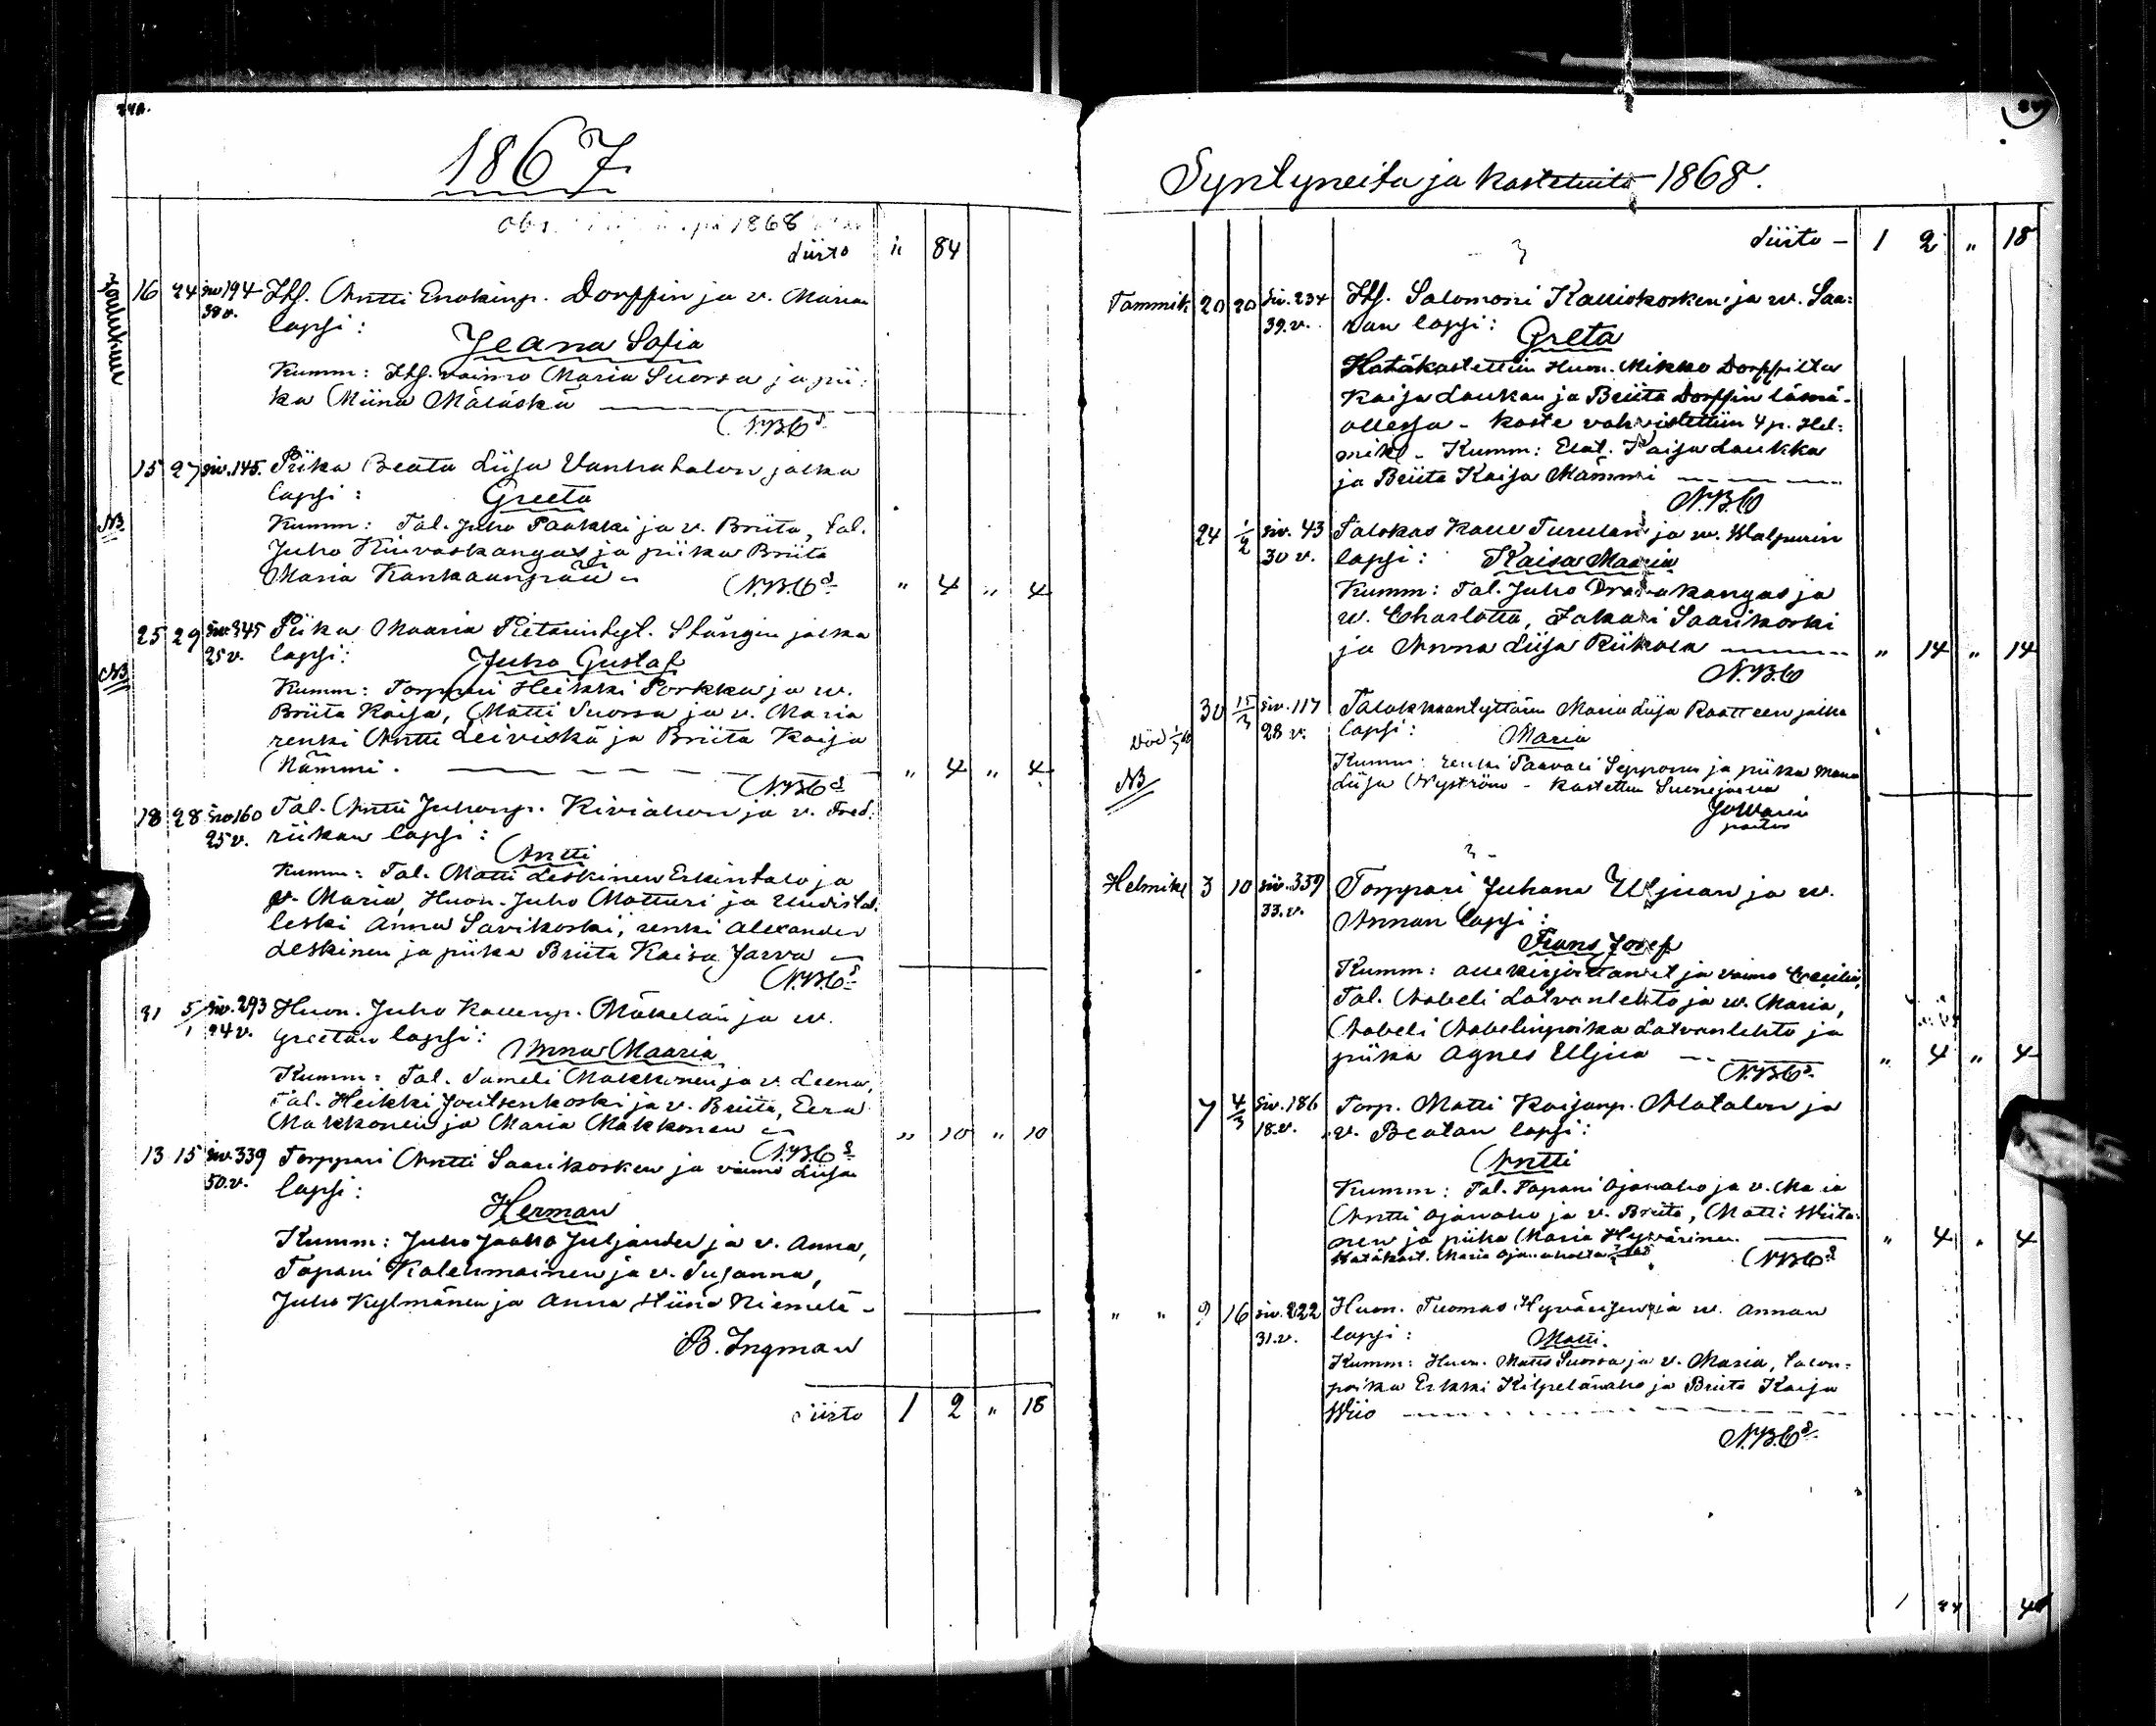 1867
1868
siirto " 84
Joulukuu
16 24 siv 194 Its. Antti Enokinp. Dorffin ja v. Marian
38 v. lapsi:
Jeana Sofia
Kumm: Its. vaimo Maria Suorsa ja pii-
ka Miina Mäläskä
N.B.C
NB
15 27 siv. 145. Piika Beata Liisa Vanhatalon jalka
lapsi: Greeta
Kumm: Tal. Juho Paakki ja v. Briita, tal.
Juho Kiivaskangas ja piika Briita
Maria Kankaanpää N.B.C " 4 " 4
NB
25 29 siv. 345 Piika Maaria Pietarintyt. Stångin jalka
25 v. lapsi: Juho Gustaf
Kumm: Torppari Heikki Porkka ja w.
Briita Kaisa, Matti Suorsa ja v. Maria
renki Antti Leiviskä ja Briita Kaisa
Nämmi. " 4 " 4
N.B.C
18 28 siv 160 Tal. Antti Juhonp. Kiviahon ja v. Fred-
25 v. riikan lapsi:
Antti
Kumm: Tal. Matti Leskinen Erkintalo ja
v. Maria, Huon. Juho Matturi ja Uudistal.
leski Anna Savikoski, renki Alexander
Leskinen ja piika Briita Kaisa Jarva
N.B.C
31 5/1 siv. 293 Huon. Juho Kallenp. Mäkelän ja w.
24 v. Greetan lapsi: Anna Maaria
Kumm: Tal. Sameli Makkonen ja v. Leena,
Tal. Heikki Joutsenkoski ja v. Briita, Eera
Makkonen ja Maria Makkonen " 10 " 10
N.B.C
13 15 siv. 339 Torppari Antti Saarikosken ja vaimo Liisan
50. v. lapsi:
Herman
Kumm: Juho Jaakko Juljander ja v. Anna,
Tapani Kolehmainen ja v. Susanna,
Juho Kylmänen ja Anna Stiina Niemelä
B. Ingman
siirto 1 2 " 18
Syntyneitä ja kastetuita 1868.
siirto 1 2 " 18
Tammik 20 20 siv. 234 Its. Salomoni Kalliokosken ja w. Saa-
39. v. ran lapsi: Greta
Hätäkastettiin Huon. Mikko Dorffilta
Kaisa Laukan ja Briita Dorffin läsnä-
ollessa - kaste vahvistettiin 4 p. Hel-
mik. - Kumm: Kaisa Laukka
ja Briita Kaisa Mämmi
N.B.C
24 1/2 siv. 43 Talokas Kalle Turulan ja w. Walpurin
30 v. lapsi: Kaisa Maaria
Kumm: Tal. Juho kangas ja
w. Charlotta, Jakari Saarikoski
ja Anna Liisa Riikola " 14 " 14
N.B.C
30 15/3 siv. 117 Talokkaantyttären Maria Liisa Raatteen jalka
28 v. lapsi: Maria
Död
NB
Kumm: renki Paavali Sepponen ja piika
Liisa Nyström - Kastettu
Helmik 3 10 siv. 339 Torppari Juhana Uljuan ja w.
33. v. Annan lapsi:
Frans Josef
Kumm: allekirjoittanut ja vaimo Cecilia,
Tal. Aabeli Latvanlehto ja w. Maria,
Aabeli Aabelinpoika Latvanlehto ja
piika Agnes Uljua " 4 " 4
N.B.C
7 4/3 siv. 186 Torp. Matti Kaijanp. Alatalon ja
18. v. v. Beatan lapsi:
Antti
Kumm: Tal. Tapani Ojanaho ja v. Maria
Antti Ojanaho ja v. Briita, Matti Wiita-
nen ja piika Maria Hyvärinen. " 4 " 4
Hätäkast. Maria Ojanaholta N.B.C
" " 9 16 siv. 222 Huon. Tuomas Hyvärisen ja w. Annan
31. v. lapsi: Matti.
Kumm: Huon. Matti Suorsa ja v. Maria, talon-
poika Erkki Kilpelänaho ja Briita Kaisa
Wiio
N.B.C